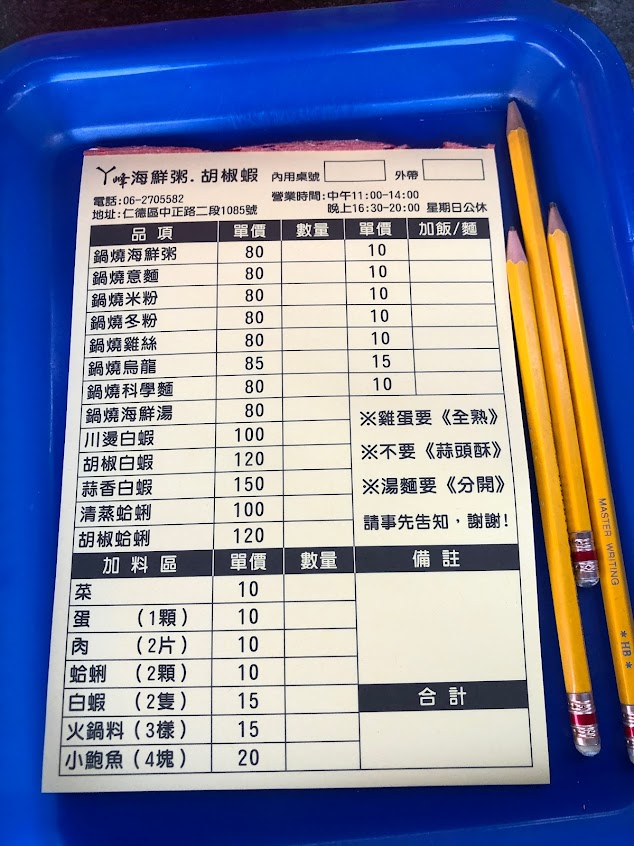 丫峰海鮮粥.胡椒蝦 內用桌號 外帶
電話:06-2705582 營業時間:中午11:00-14:00
地址:仁德區中正路二段1085號 晚上16:30-20:00 星期日公休
品項 單價 數量 單價 加飯/麵
鍋燒海鮮粥 80 10
鍋燒意麵 80 10
鍋燒米粉 80 10
鍋燒冬粉 80 10
鍋燒雞絲 80 10
鍋燒烏龍 85 15
鍋燒科學麵 80 10
鍋燒海鮮湯 80
川燙白蝦 100
胡椒白蝦 120
蒜香白蝦 150
清蒸蛤蜊 100
胡椒蛤蜊 120
※雞蛋要《全熟》
※不要《蒜頭酥》
※湯麵要《分開》
請事先告知,謝謝!
加料區 單價 數量 備註
菜 10
蛋 (1顆) 10
肉 (2片) 10
蛤蜊 (2顆) 10
白蝦 (2隻) 15
火鍋料(3樣) 15
小鮑魚(4塊) 20
合計
MASTER WRITING
* HB *